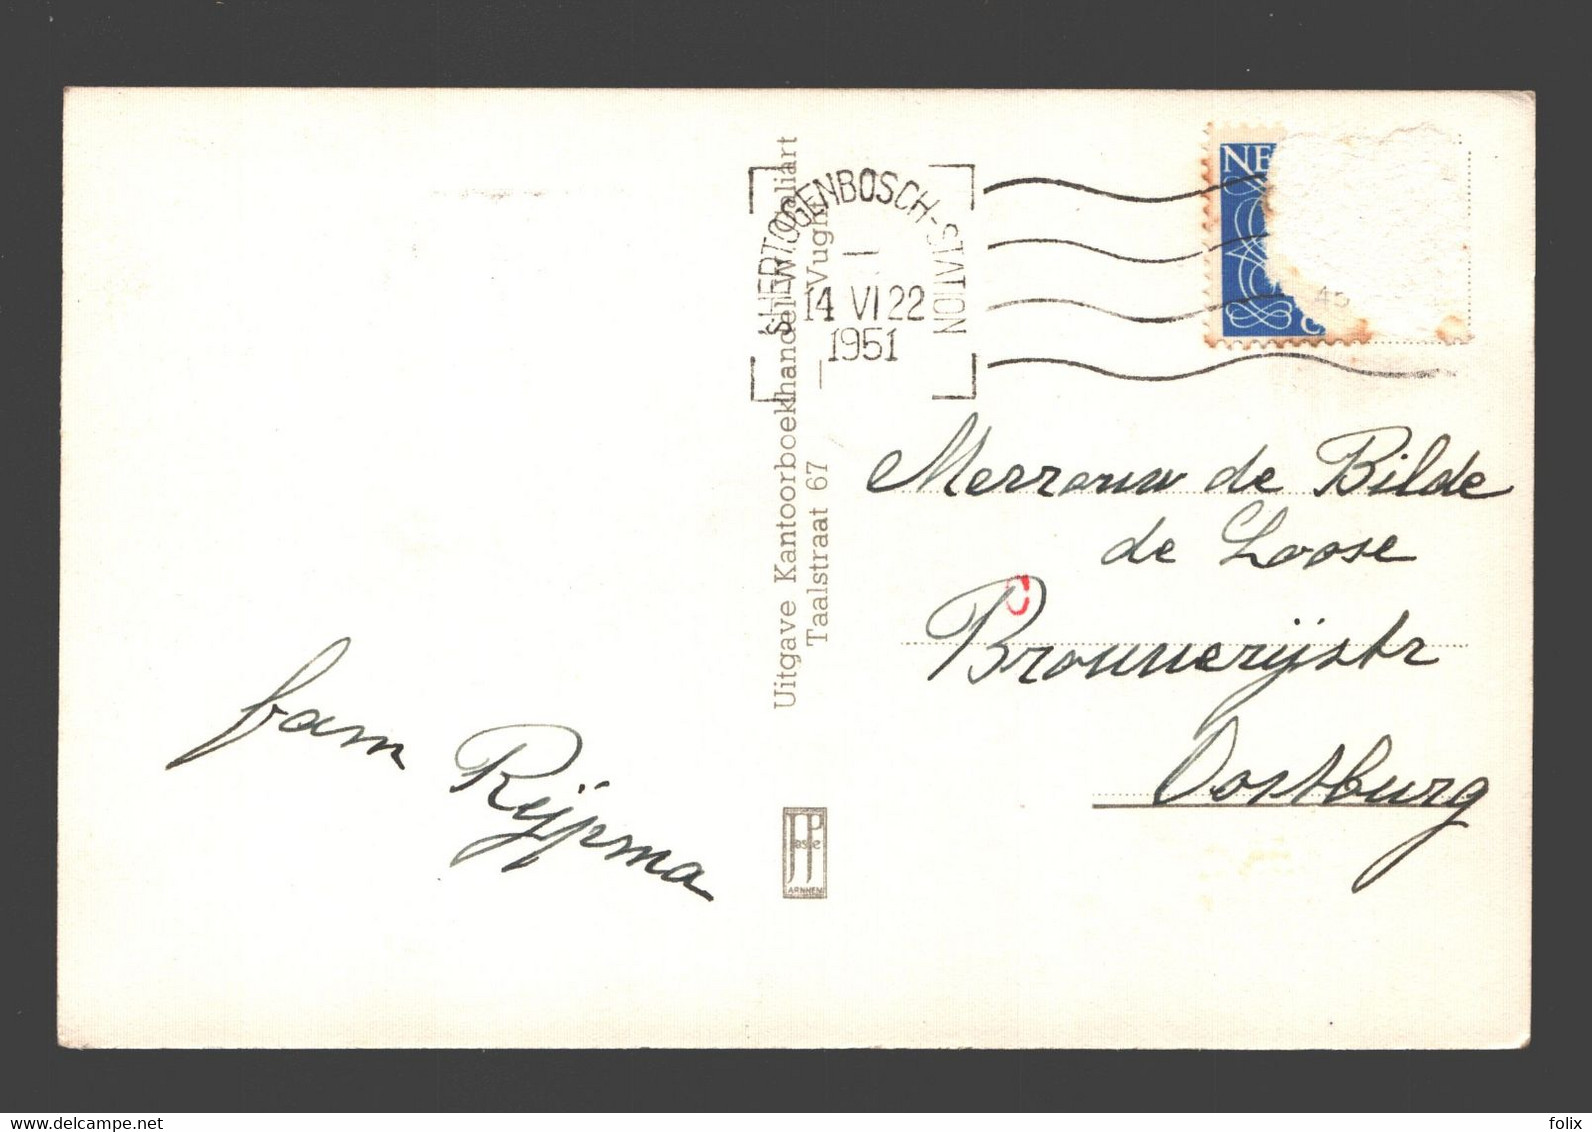 fam Rijpma
Uitgave Kantoorboekhandel W.
Vught
Taalstraat 67
'S HERTOGENBOSCH-STATION
14 VI 22
1951
NE
C
45
Mevrouw de Bilde
de Loose
C
Brouwerijstr
Oostburg
JP
ARNHEM
folix